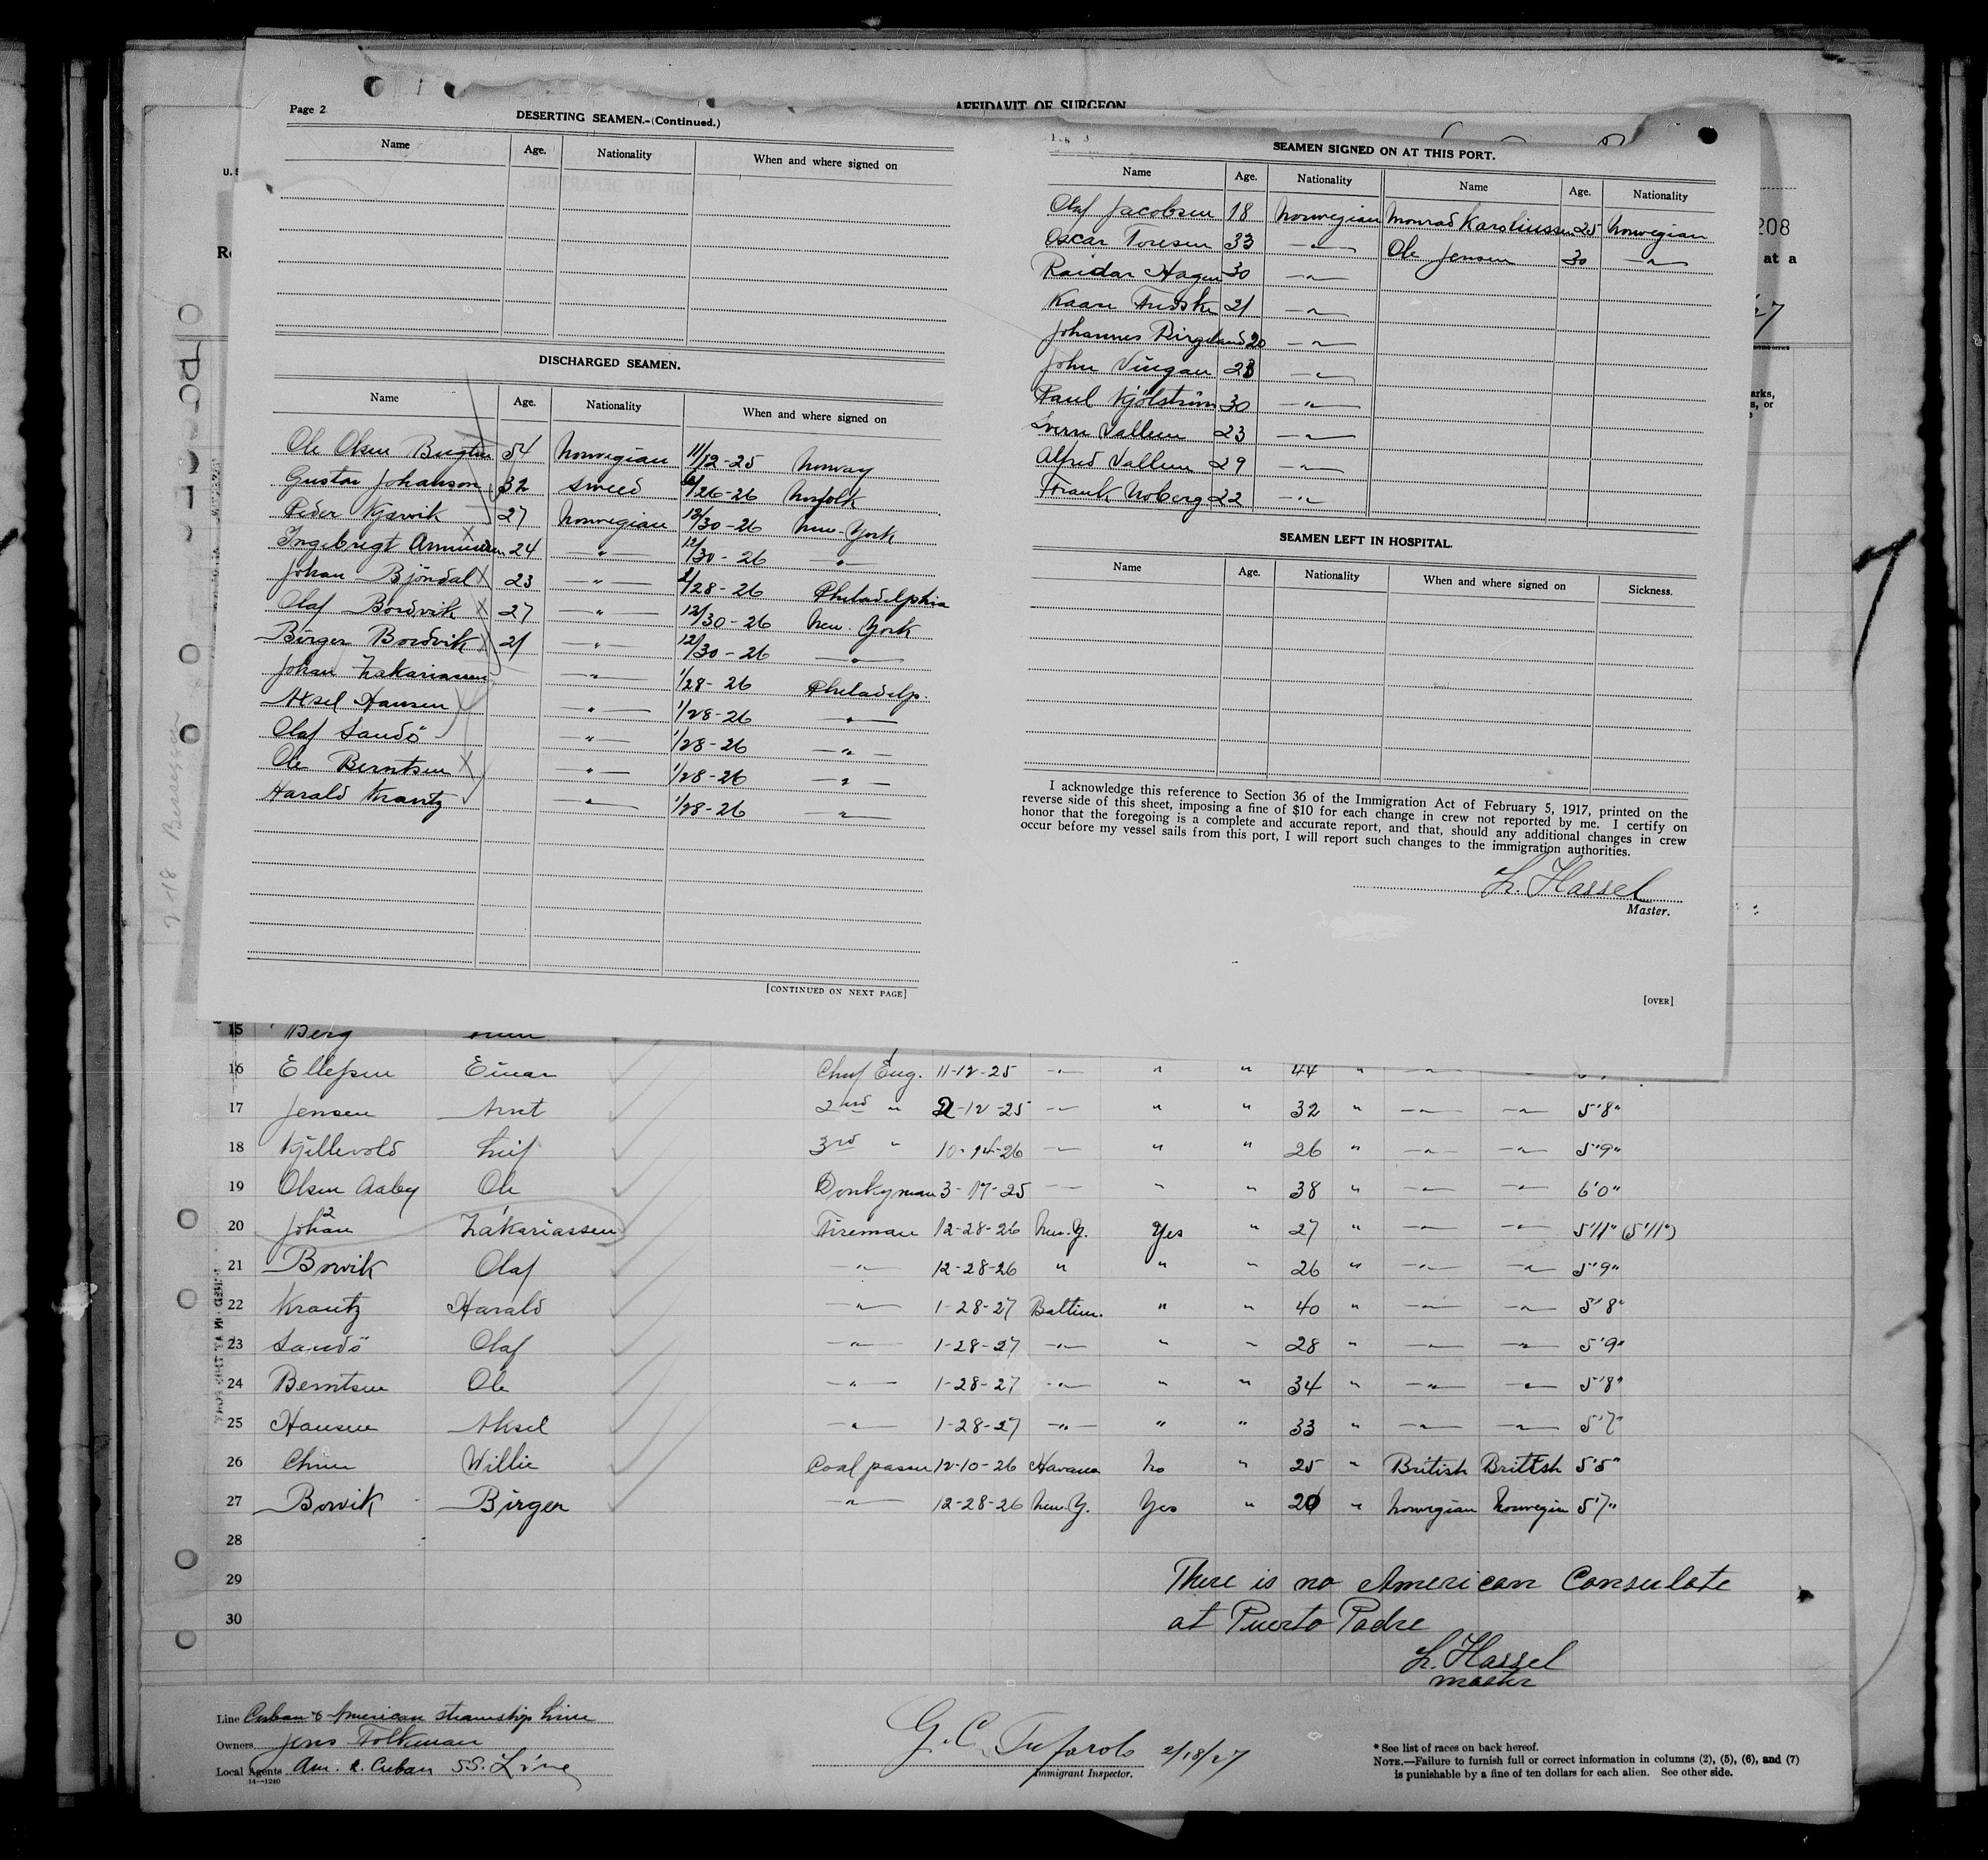 AFFIDAVIT OF SURGEON
Page 2
DESERTING SEAMEN.-(Continued.)
Name Age. Nationality When and where signed on
DISCHARGED SEAMEN.
Name Age. Nationality When and where signed on
Ole Olsen 54 Norwegian 11/12-25 Norway
Gustav Johanson 32 Sweed 6/26-26 Norfolk
Peder Kjarvik 27 Norwegian 12/30-26 New-York
Ingebrigt 24 —"— 12/30-26 —"—
Johan Bjöndal X 23 —"— /28-26 Philadelphia
Olaf Bordvik X 27 —"— 12/30-26 New-York
Birger Bordvik X 21 —"— 12/30-26 —"—
Johan Zakariassen —"— 1/28-26 Philadelp.
Aksel Hansen —"— 1/28-26 —"—
Olaf Sandö —"— 1/28-26 —"—
Ole Berntsen X —"— 1/28-26 —"—
Harald Krantz —"— 1/28-26 —"—
[CONTINUED ON NEXT PAGE]
SEAMEN SIGNED ON AT THIS PORT.
Name Age. Nationality Name Age. Nationality
Olaf Jacobsen 18 Norwegian Monrad Karoliussen 25 Norwegian
Oscar Toresen 33 —"— Ole Jensen 30 —"—
Reidar Hagen 30 —"—
Kaare 21 —"—
Johannes Birgeland 20 —"—
John Vingan 23 —"—
Paul Kjölström 30 —"—
Sverre Vallum 23 —"—
Alfred Vallum 29 —"—
Frank Noberg 22 —"—
SEAMEN LEFT IN HOSPITAL.
Name Age. Nationality When and where signed on Sickness.
I acknowledge this reference to Section 36 of the Immigration Act of February 5, 1917, printed on the
reverse side of this sheet, imposing a fine of $10 for each change in crew not reported by me. I certify on
honor that the foregoing is a complete and accurate report, and that, should any additional changes in crew
occur before my vessel sails from this port, I will report such changes to the immigration authorities.
L. Hassel
Master.
[OVER]
U.S
208
at a
arks,
s, or
2-18 Bessegger
15 Berg
16 Ellefsen Einar Chief Eng. 11-12-25 —"— " " 44 " —"— —"—
17 Jensen Arnt 2nd " 2-12-25 —"— " " 32 " —"— —"— 5'8"
18 Kjellevold Leif 3rd " 10-14-26 —"— " " 26 " —"— —"— 5'9"
19 Olsen Aaby Ole Donkyman 3-17-25 —"— " " 38 " —"— —"— 6'0"
20 Johan 2 Zakariassen 1 Fireman 12-28-26 New.Y. Yes " 27 " —"— —"— 5'11" (5'11")
21 Borvik Olaf —"— 12-28-26 " " " 26 " —"— —"— 5'9"
22 Krantz Harald —"— 1-28-27 Baltim. " " 40 " —"— —"— 5'8"
23 Sandö Olaf —"— 1-28-27 —"— " " 28 " —"— —"— 5'9"
24 Berntsen Ole —"— 1-28-27 —"— " " 34 " —"— —"— 5'8"
25 Hansen Aksel —"— 1-28-27 —"— " " 33 " —"— —"— 5'7"
26 Willie Coal passer 12-10-26 Havana No " 25 " British British 5'5"
27 Borvik Birger —"— 12-28-26 New.Y. Yes " 20 " Norwegian Norwegian 5'7"
28
29
30
There is no American Consulate
at Puerto Padre
L. Hassel
master
Line Cuban & American Steamship Line
Owners Jens Folkman
Local Agents Am. & Cuban S.S. Line
14—1240
G. C. 2/18/27
Immigrant Inspector.
* See list of races on back hereof.
NOTE.—Failure to furnish full or correct information in columns (2), (5), (6), and (7)
is punishable by a fine of ten dollars for each alien. See other side.